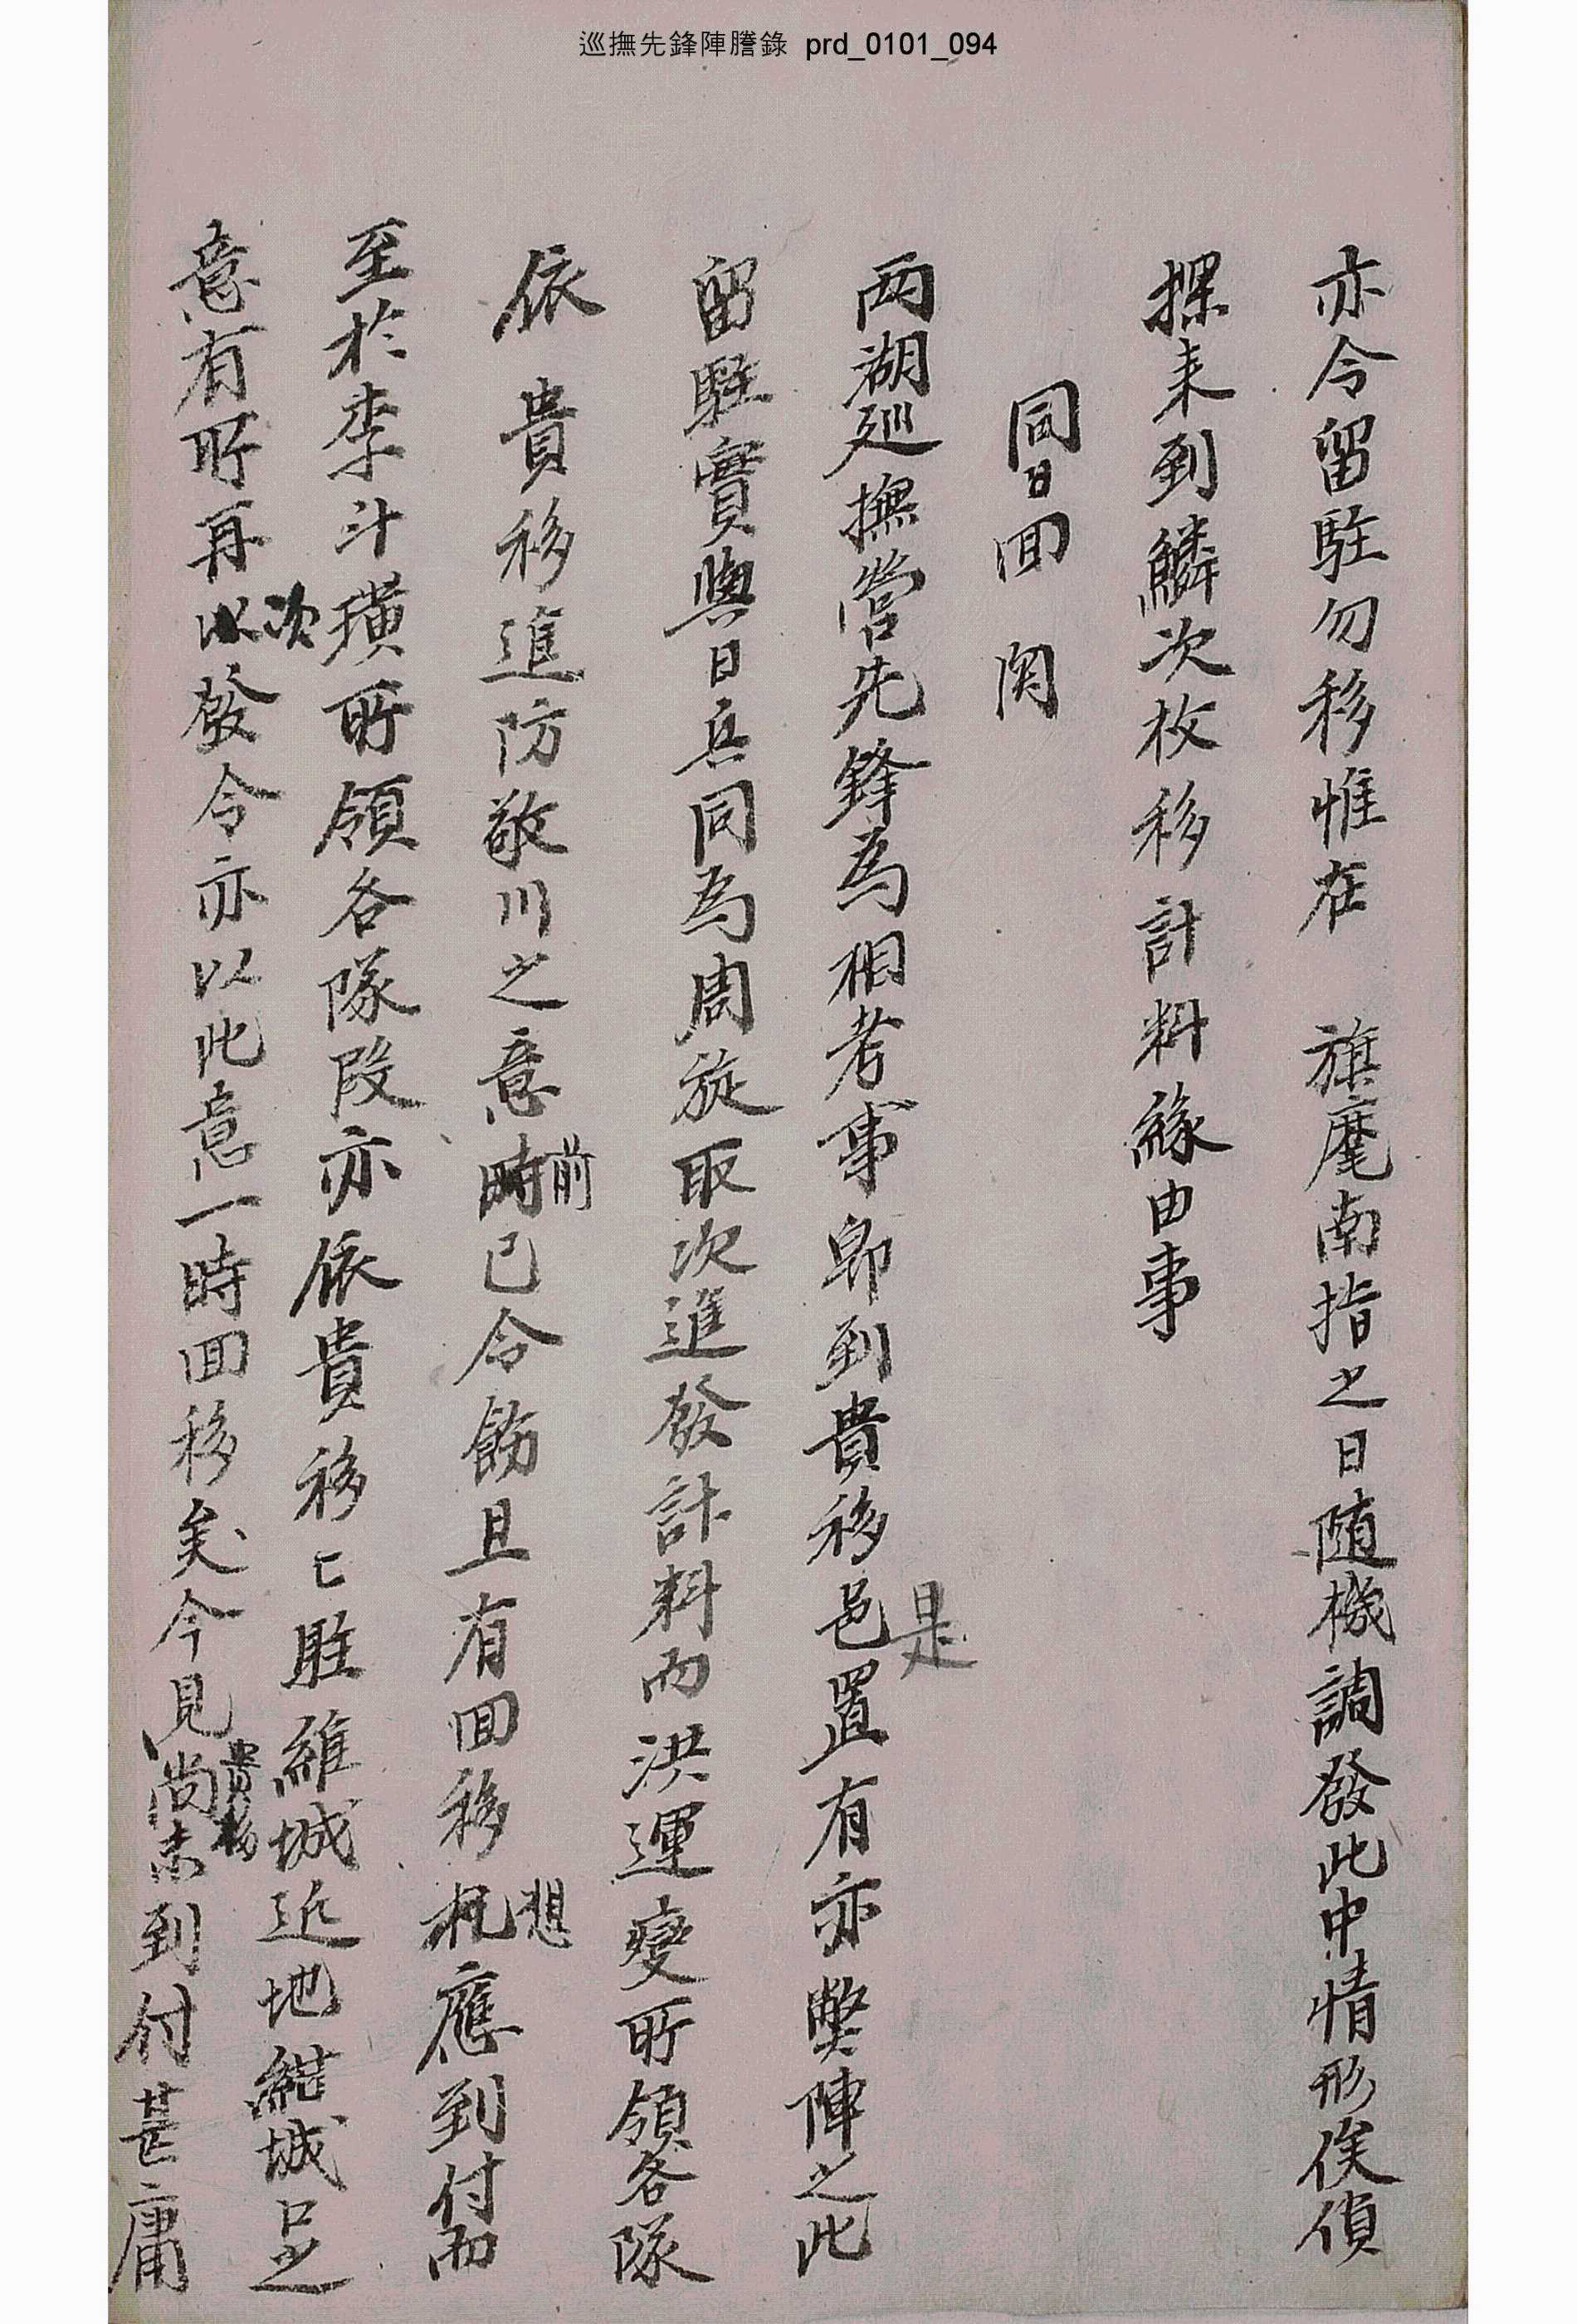 巡撫先鋒陣謄錄 prd_0101_094
亦令留駐勿移惟在 旗麾南指之日随機調發此中情形俟偵
探来到鱗次枚移計料緣由事
同日回関
兩湖廵撫營先鋒爲相考事卽到貴移是
邑置有亦弊陣之此
留駐實與日兵同爲周旋取次進發計料而洪運變所領各隊
依 貴移進防敬川之意前
時已令飭且有回移想
應到付而
至於李斗璜所領各隊段亦依貴移已駐維城近地結城足之
意有所再次
以發令亦以此意一時回移矣今見貴移
尚未到付甚庸